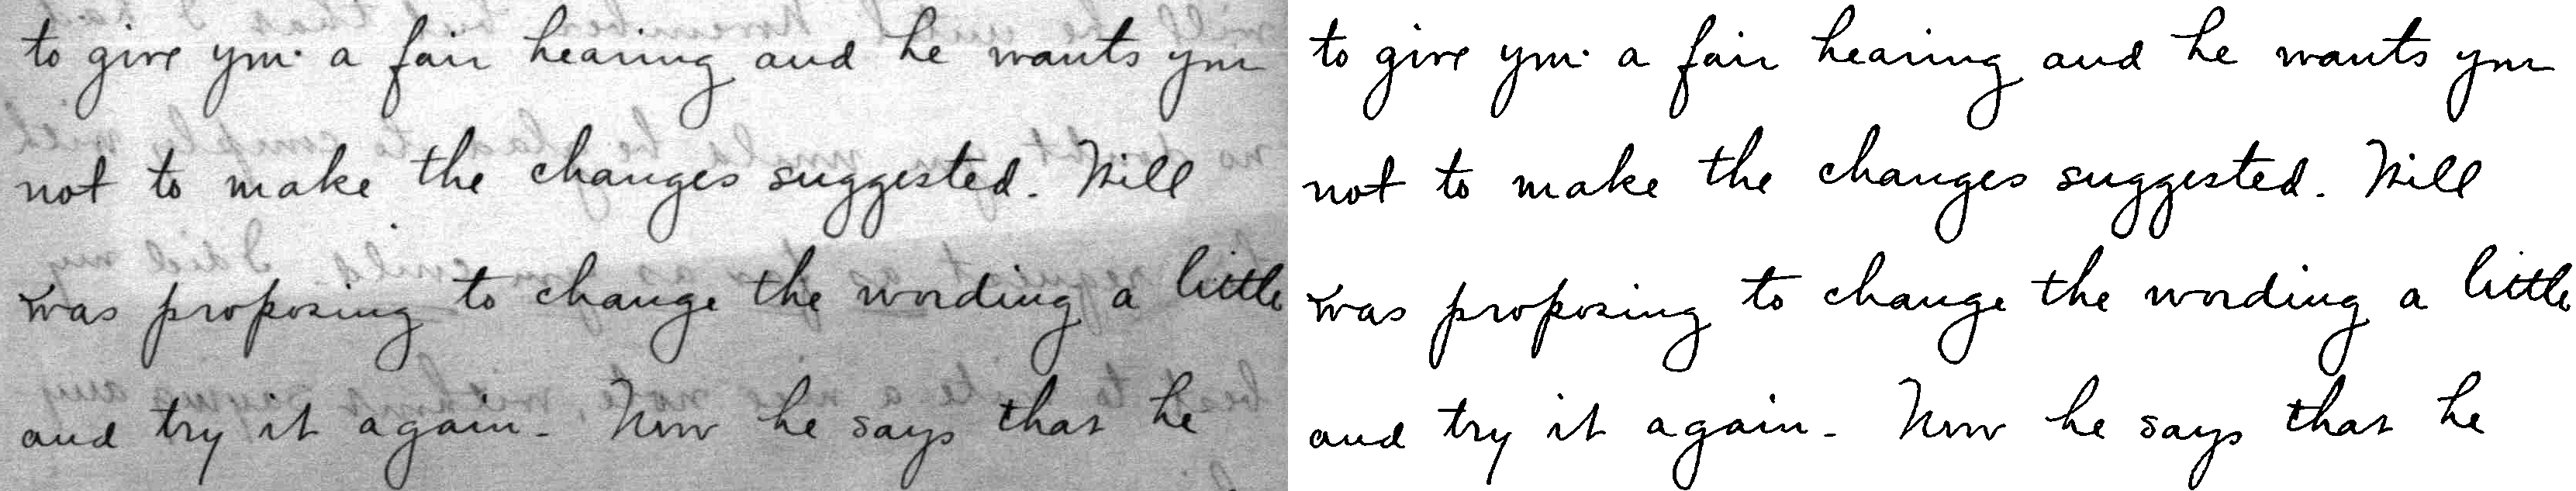 to give you a fair hearing and he wants you
not to make the changes suggested. Will
was proposing to change the wording a little
and try it again. Now he says that he
to give you a fair hearing and he wants you
not to make the changes suggested. Will
was proposing to change the wording a little
and try it again. Now he says that he